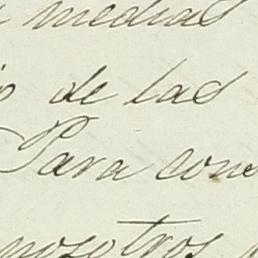 medias
de las
Para con
nosotros